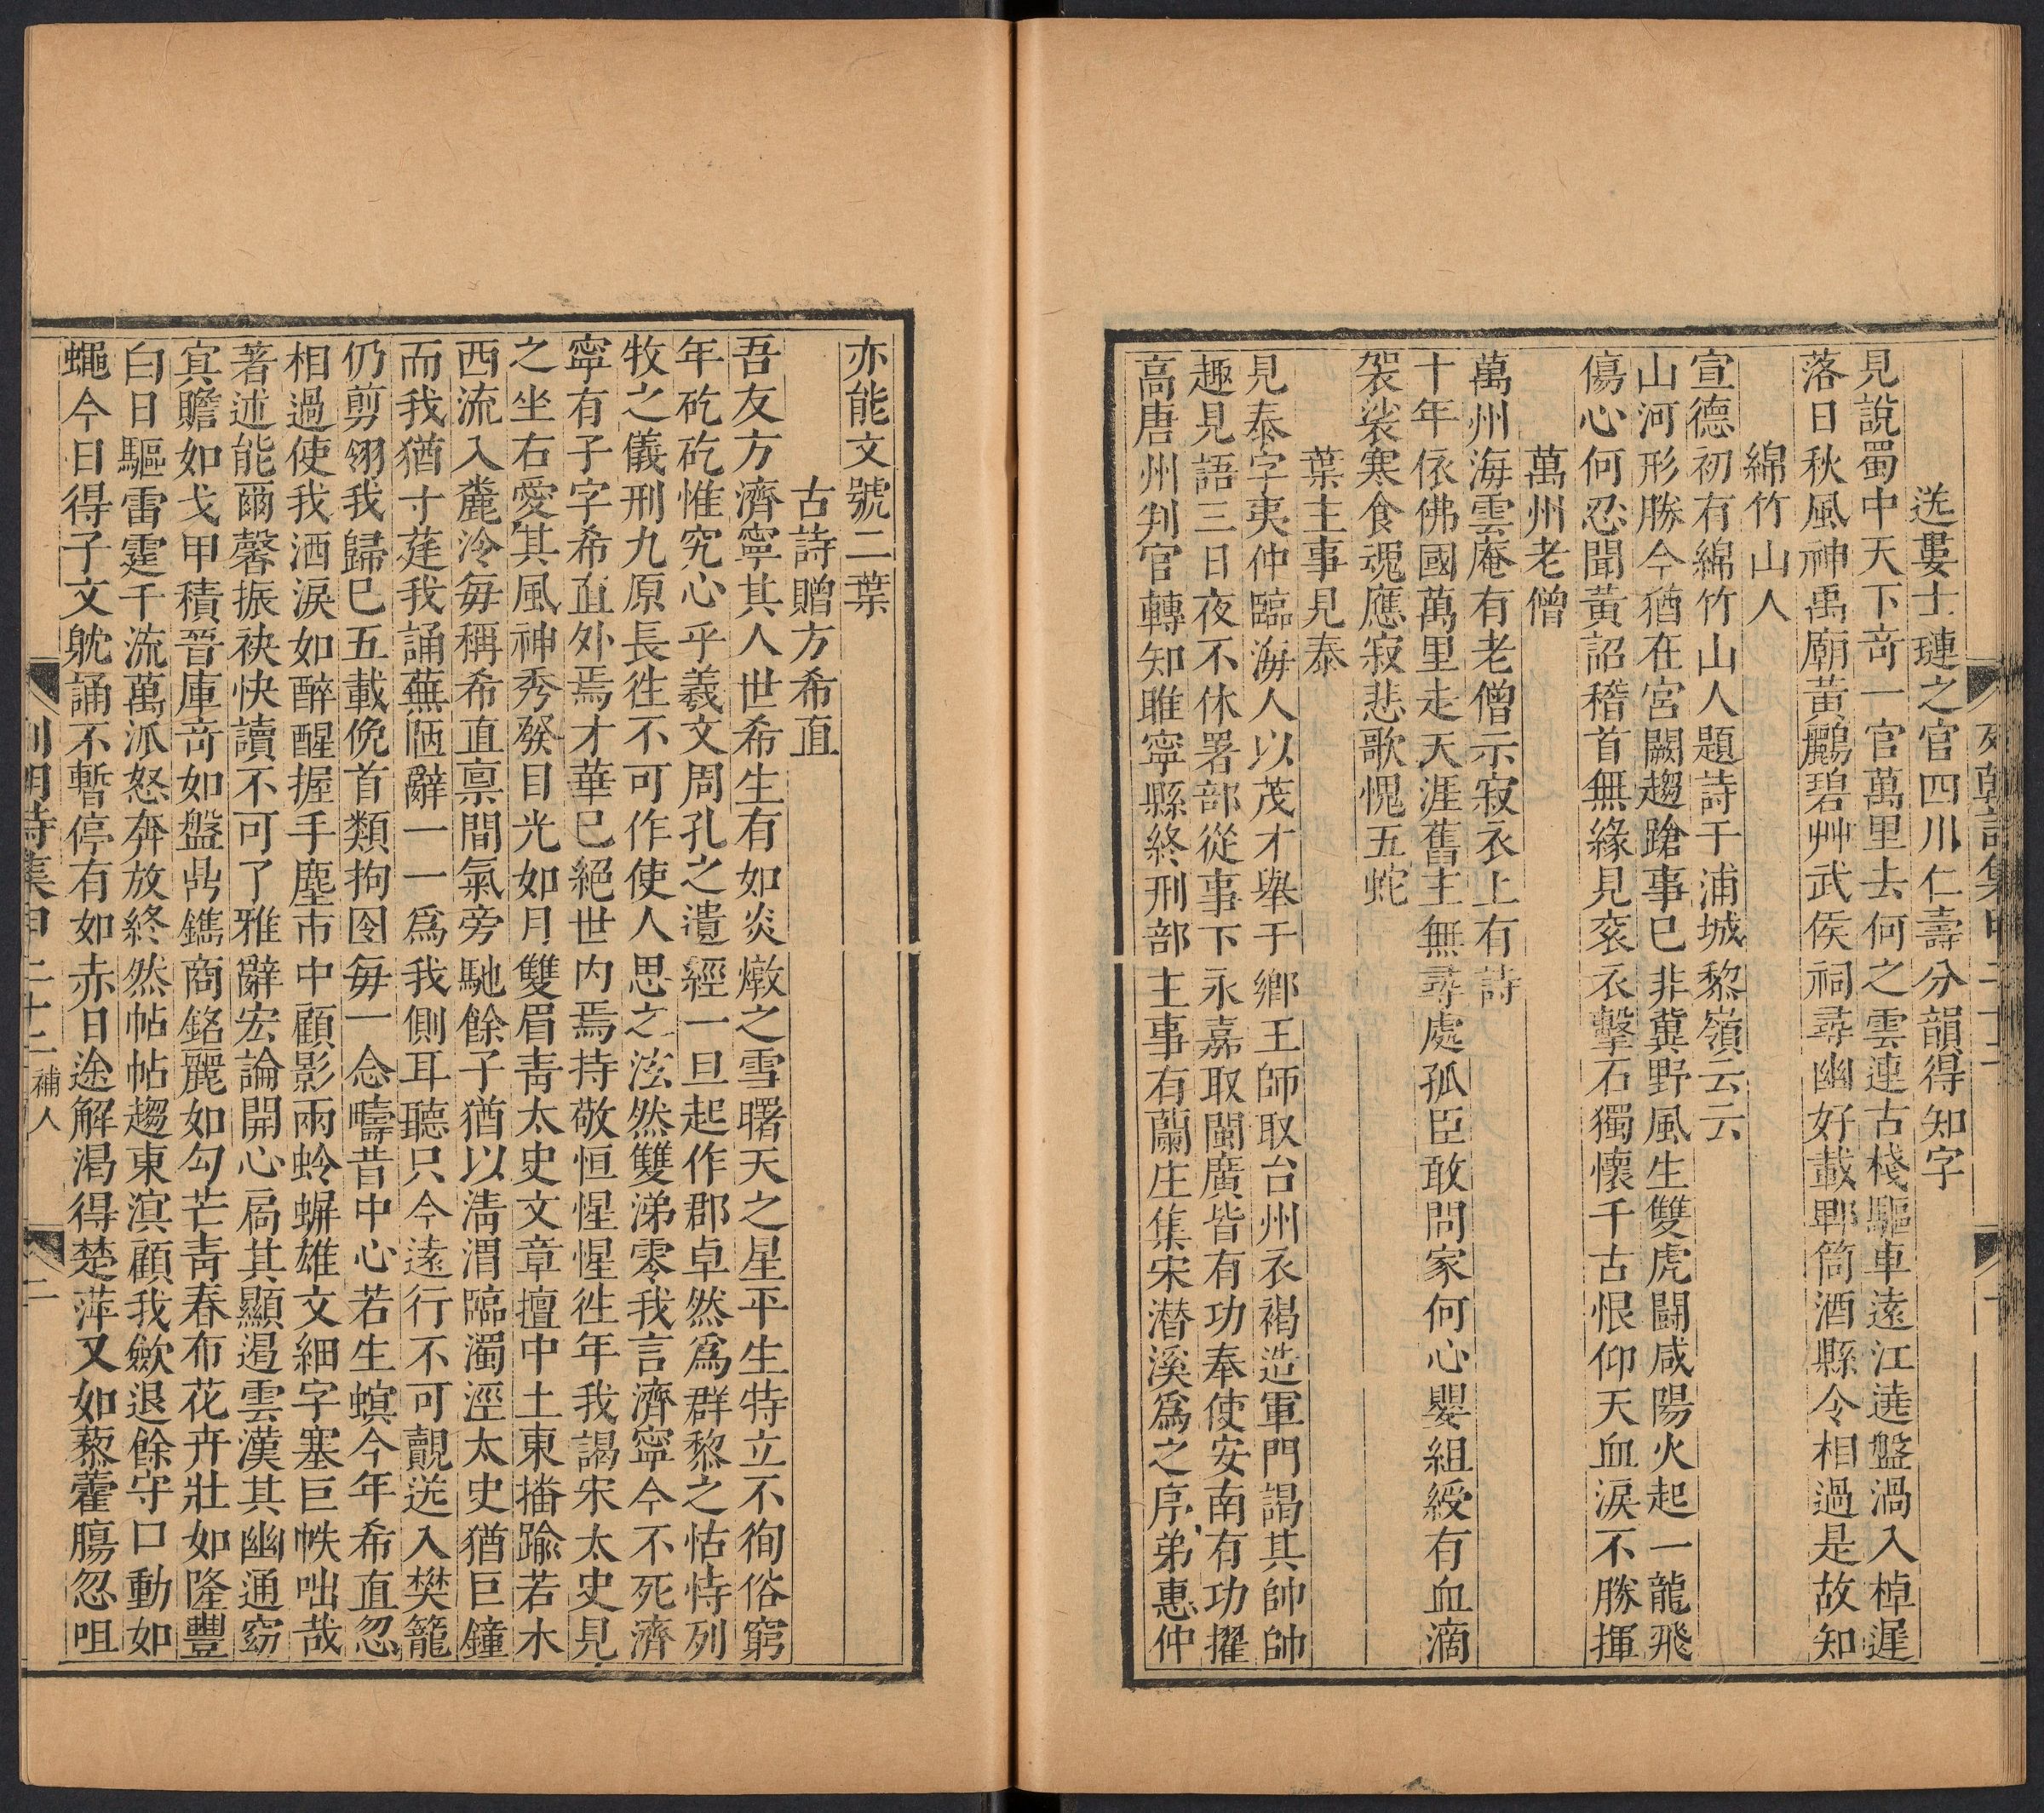 送婁士璉之官四川仁壽分韻得知字
見說蜀中天下竒一官萬里去何之雲連古棧驅車遠江遶盤渦入棹遲
落日秋風神禹廟黃鸝碧艸武侯祠尋幽好載郫筒酒縣令相過是故知
綿竹山人
宣德初有綿竹山人題詩于浦城黎嶺云云
山河形勝今猶在宮闕趨蹌事已非冀野風生雙虎鬪咸陽火起一龍飛
傷心何忍聞黃詔稽首無緣見袞衣擊石獨懷千古恨仰天血淚不勝揮
萬州老僧
萬州海雲庵有老僧示寂衣上有詩
十年依佛國萬里走天涯舊主無尋處孤臣敢問家何心嬰組綬有血滴
袈裟寒食魂應寂悲歌愧五蛇
葉主事見泰
見泰字夷仲臨海人以茂才舉于鄉王師取台州衣褐造軍門謁其帥帥
趣見語三日夜不休署部從事下永嘉取閩廣皆有功奉使安南有功擢
高唐州判官轉知睢寧縣終刑部主事有蘭庄集宋潛溪爲之序弟惠仲
亦能文號二葉
古詩贈方希直
吾友方濟寧其人世希生有如炎燉之雪曙天之星平生特立不徇俗窮
年矻矻惟究心乎羲文周孔之遺經一旦起作郡卓然爲群黎之怙恃列
牧之儀刑九原長徃不可作使人思之泫然雙涕零我言濟寧今不死濟
寧有子字希直外焉才華已絕世内焉持敬恒惺惺徃年我謁宋太史見
之坐右愛其風神秀發目光如月雙眉靑太史文章擅中土東播踰若木
西流入麄泠毎稱希直稟間氣旁馳餘子猶以淸渭臨濁涇太史猶巨鐘
而我猶寸莛我誦蕪陋辭一一爲我側耳聽只今遠行不可覿送入樊籠
仍剪翎我歸已五載俛首類拘囹毎一念疇昔中心若生螟今年希直忽
相過使我洒淚如醉醒握手塵市中顧影兩蛉蠊雄文細字塞巨帙咄哉
著述能爾馨振袂快讀不可了雅辭宏論開心扃其顯遏雲漢其幽通窈
㝠贍如戈甲積晉庫竒如盤鼎鐫商銘麗如勾芒靑春布花卉壯如隆豐
白日驅雷霆千流萬派怒奔放終然帖帖趨東溟顧我歛退餘守口動如
蠅今日得子文躭誦不暫停有如赤日途解渴得楚萍又如藜藿膓忽咀
列朝詩集甲二十二 補人 二